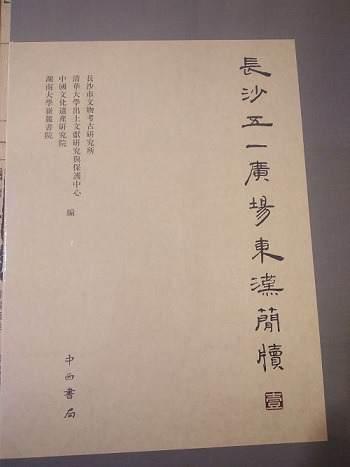 長沙五一廣場東漢簡牘
壹
長沙市文物考古研究所
清華大學出土文獻研究與保護中心
中國文化遺產研究院
湖南大學嶽麓書院
編
中西書局